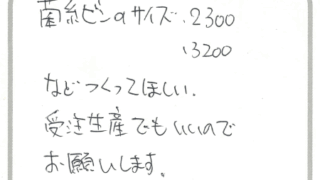 菌糸ビンのサイズ.2300
.3200
などつくってほしい.
受注生産でもいいので
お願いします。